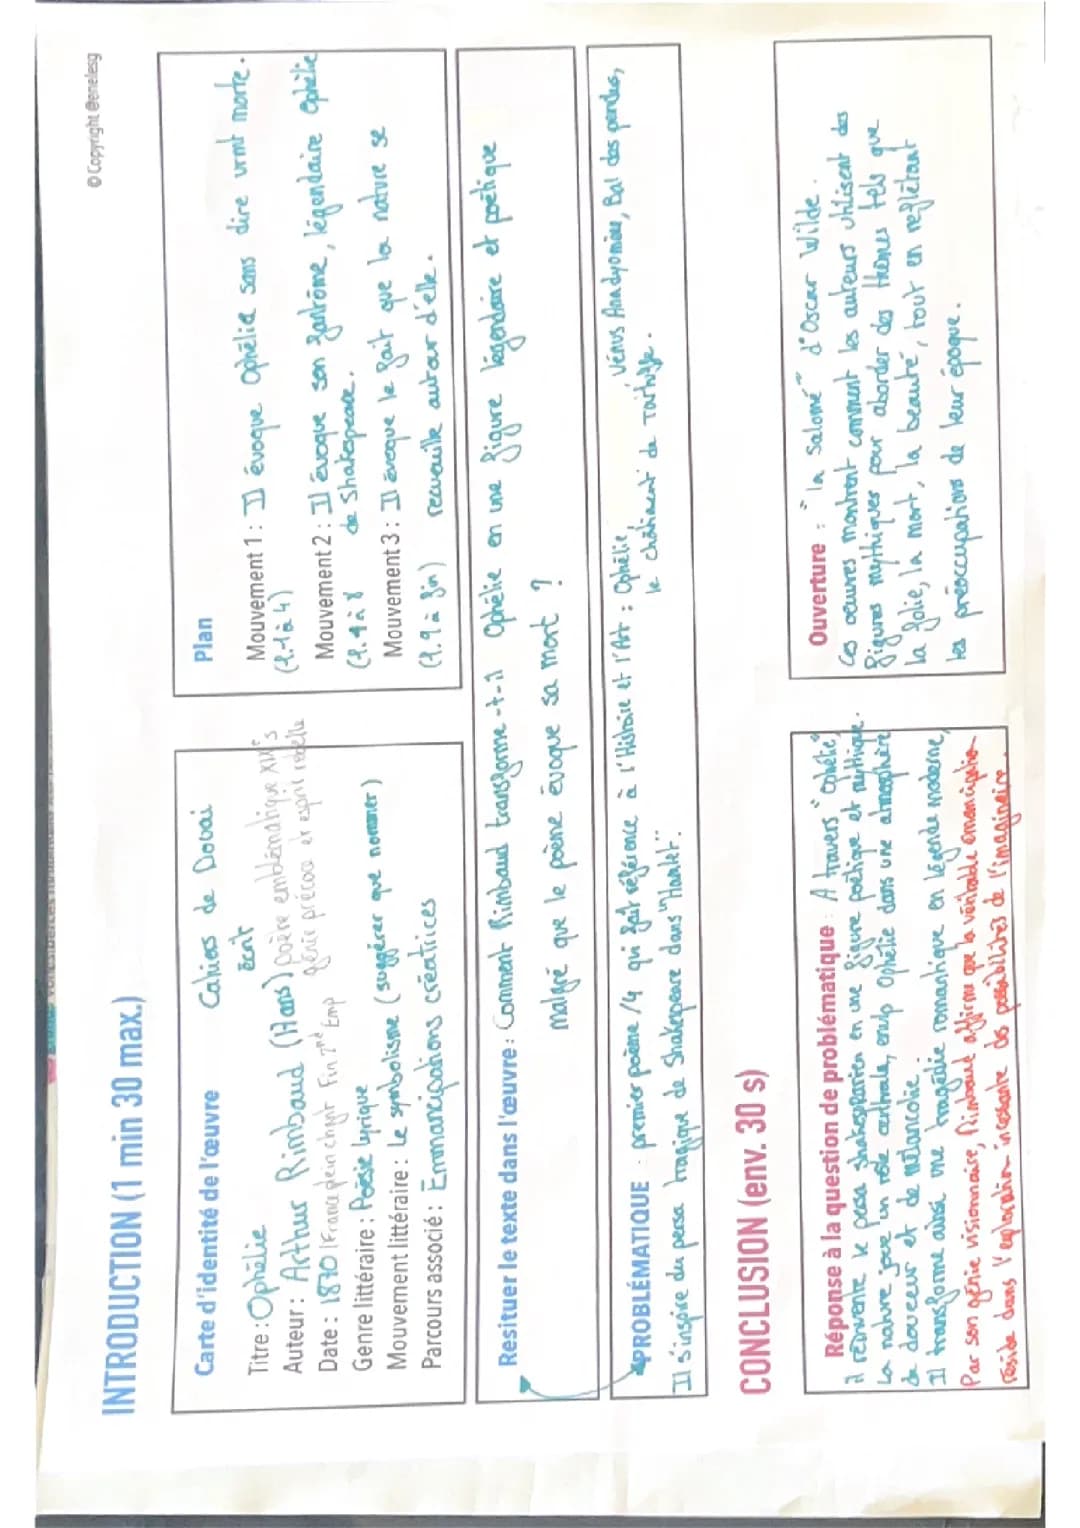 © Copyright @enelesg
INTRODUCTION (1 min 30 max.)
Carte d'identité de l'œuvre Cahiers de Douai
Titre : Ophélie écrit
Auteur : Arthur Rimbaud (17 ans) poère emblématique XIXe s
génie précoce et esprit rebelle
Date : 1870 (France plein chgmt Fin 2nd Emp
Genre littéraire : Poésie lyrique
Mouvement littéraire : Le symbolisme (suggérer que nommer)
Parcours associé : Emmancipations créatrices
Plan
Mouvement 1 : Il évoque Ophélie sans dire vrmt morte.
(l.1 à 4)
Mouvement 2 : Il évoque son fantôme, légendaire Ophélie
(l.4 à 8 de Shakespeare.
Mouvement 3 : Il évoque le fait que la nature se
(l.9 à fin) recueille autour d'elle.
Resituer le texte dans l'œuvre : Comment Rimbaud transforme-t-il Ophélie en une figure légendaire et poétique
malgré que le poème évoque sa mort ?
PROBLÉMATIQUE : premier poème /4 qui fait référence à l'Histoire et l'Art : Ophélie, Vénus Anadyomène, Bal des pendus,
le châtiment de Tartuffe.
Il s'inspire du perso tragique de Shakespeare dans "Hamlet".
CONCLUSION (env. 30 s)
Réponse à la question de problématique : A travers "Ophélie",
il réinvente le perso shakespearien en une figure poétique et mythique.
La nature joue un rôle centrale, Ophélie dans une atmosphère
de douceur et de mélancolie.
Il transforme ainsi une tragédie romantique en légende moderne,
Par son génie visionnaire, Rimbaud affirme que la véritable émancipation
réside dans l'exploration incessante des possibilités de l'imaginaire.
Ouverture : "la Salomé" d'Oscar Wilde.
Ces œuvres montrent comment les auteurs utilisent des
figures mythiques pour aborder des thèmes tels que
la folie, la mort, la beauté, tout en reflétant
les préoccupations de leur époque.